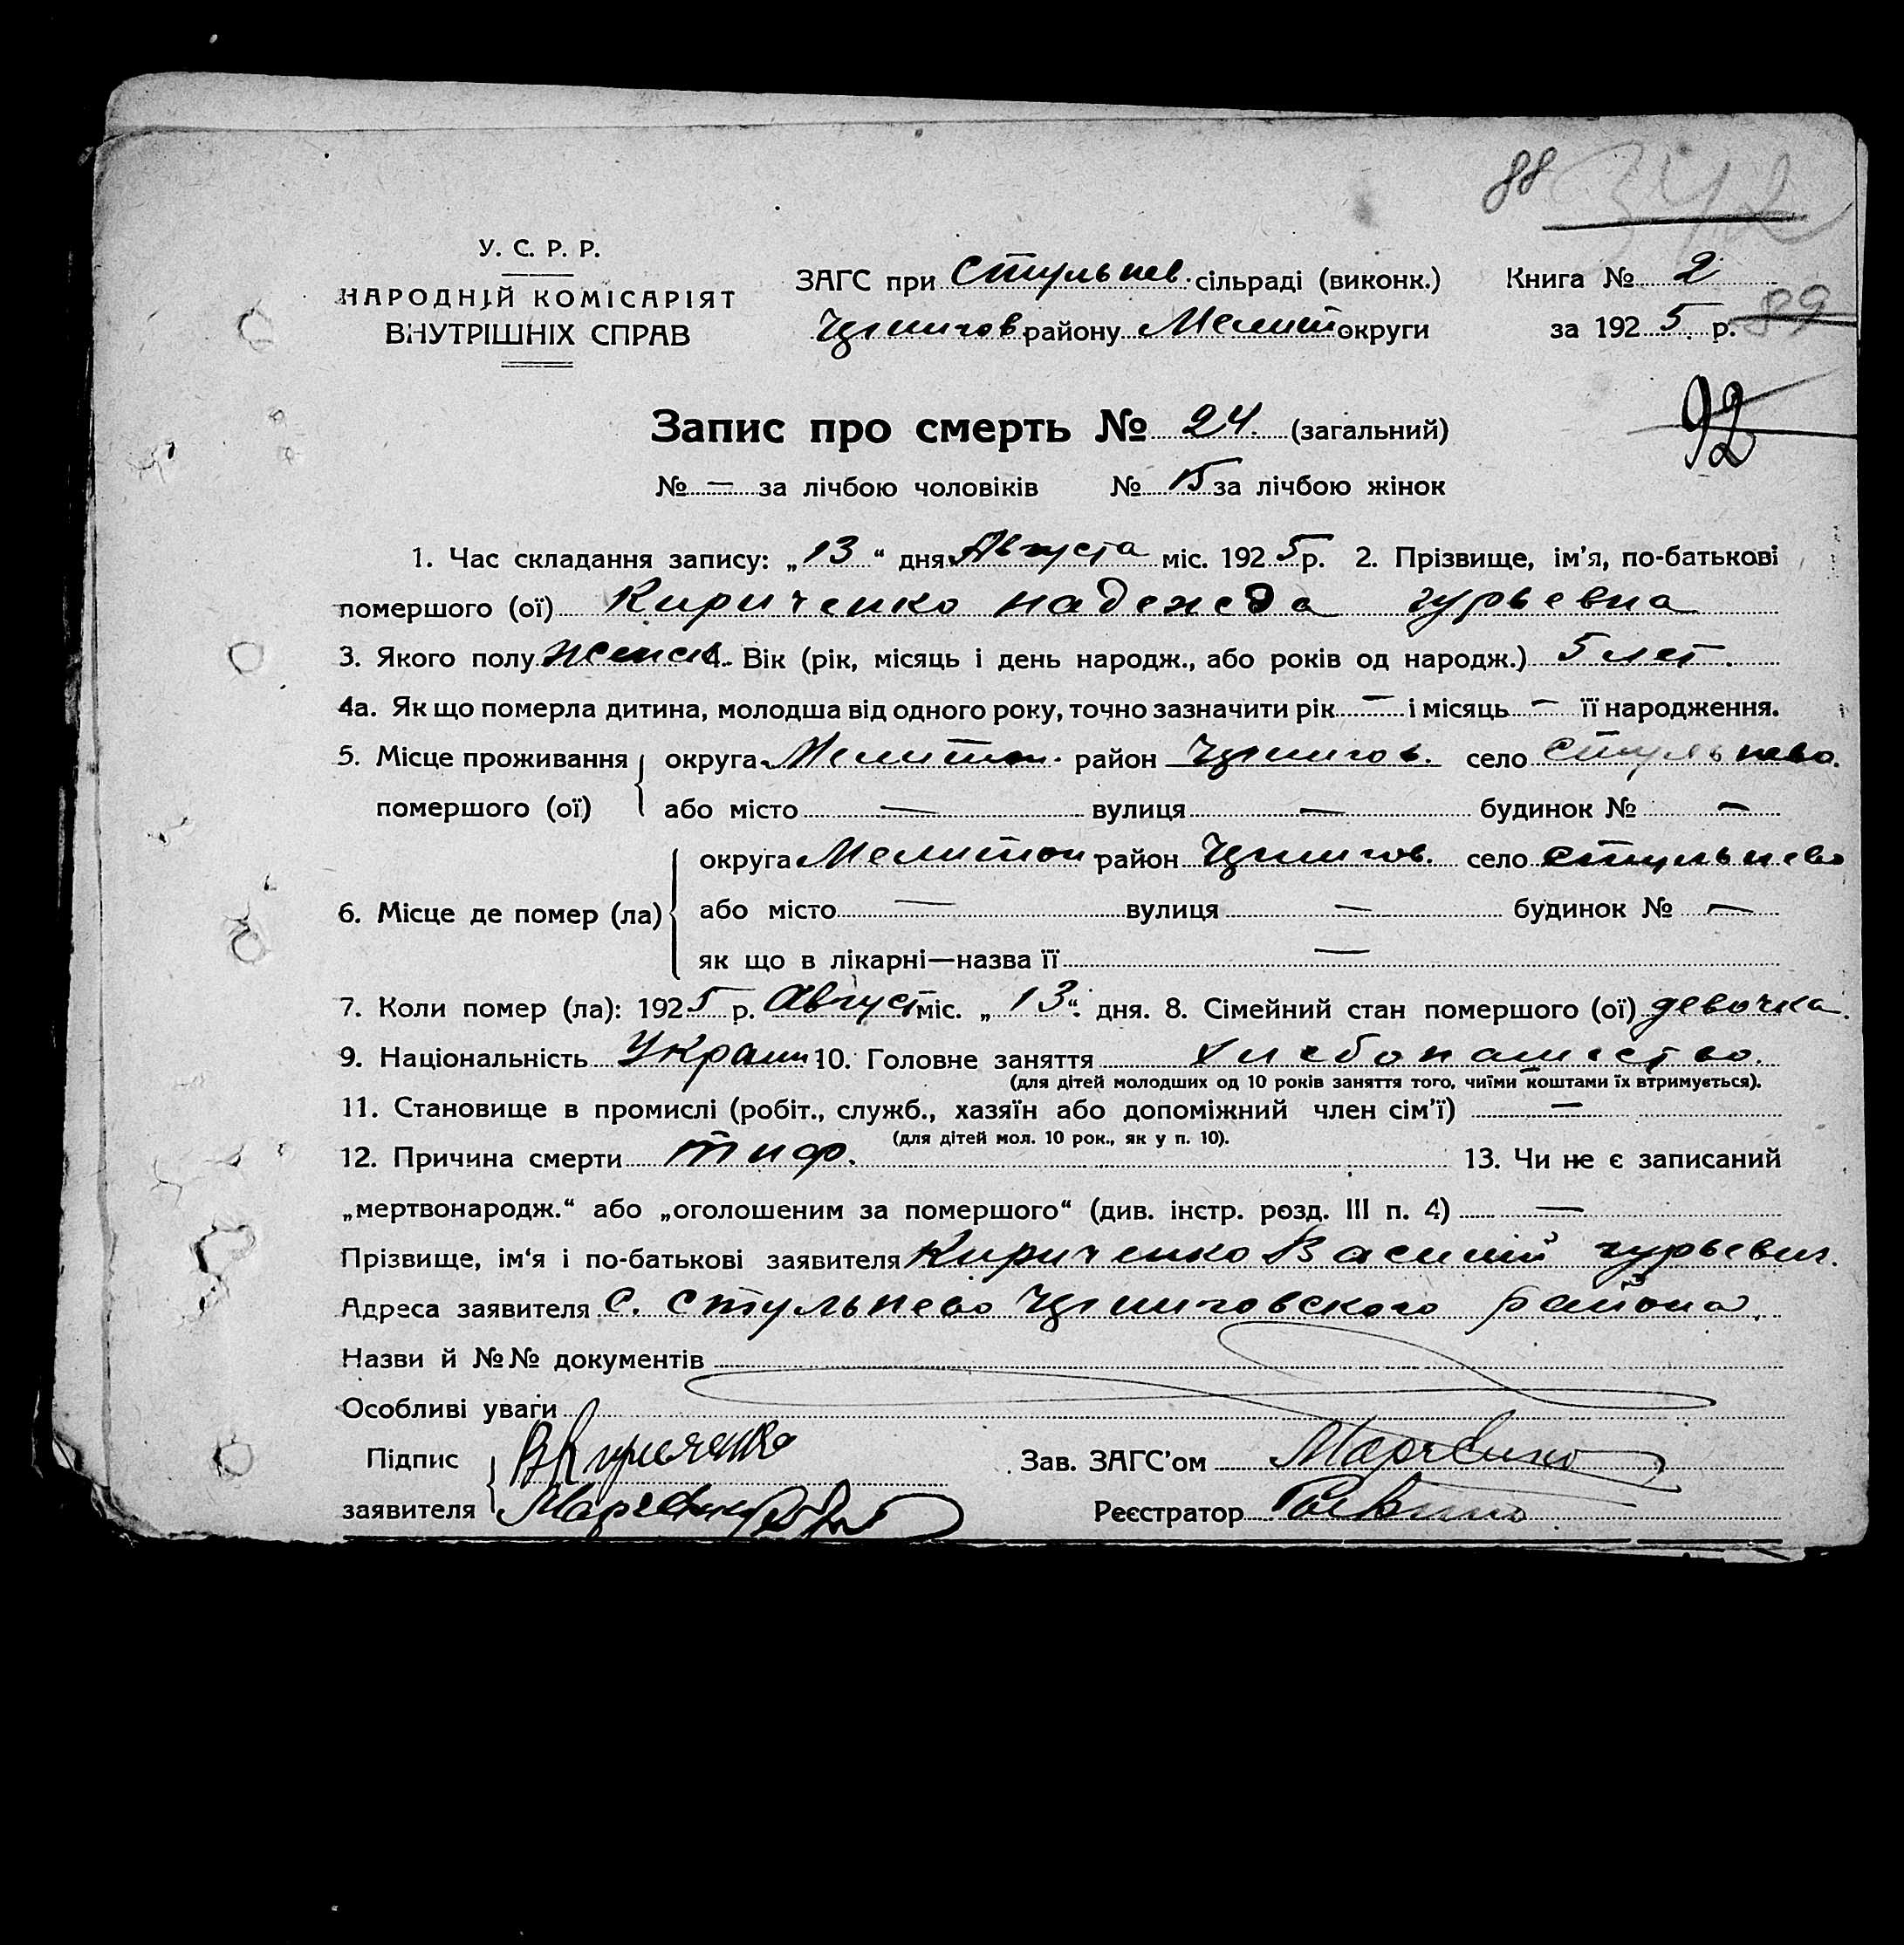 88 342
У. С. Р. Р.
НАРОДНІЙ КОМІСАРІЯТ
ВНУТРІШНІХ СПРАВ
ЗАГС при Стульнев. сільраді (виконк.) Книга № 2
району Мелит округи за 1925 р. 89
92
Запис про смерть № 24. (загальний)
№ — за лічбою чоловіків № 15 за лічбою жінок
1. Час складання запису: „13“ дня Августа міс. 1925 р. 2. Прізвище, ім'я, по-батькові
помершого (ої) Кириченко Надежда Гурьевна
3. Якого полу Женск. 4. Вік (рік, місяць і день народж., або років од народж.) 5 лет.
4а. Як що померла дитина, молодша від одного року, точно зазначити рік — і місяць — її народження.
5. Місце проживання округа Мелитоп. район село Стульнево.
помершого (ої) або місто — вулиця — будинок № —
округа Мелитоп район село Стульнево
6. Місце де помер (ла) або місто — вулиця — будинок № —
як що в лікарні—назва її —
7. Коли помер (ла): 1925 р. Август міс. „13“ дня. 8. Сімейний стан помершого (ої) девочка.
9. Національність Украин 10. Головне заняття хлебопашество.
(для дітей молодших од 10 років заняття того, чиїми коштами їх втримується).
11. Становище в промислі (робіт., служб., хазяїн або допоміжний член сім'ї) —
(для дітей мол. 10 рок., як у п. 10).
12. Причина смерти тиф. 13. Чи не є записаний
„мертвонародж.“ або „оголошеним за помершого“ (див. інстр. розд. III п. 4) —
Прізвище, ім'я і по-батькові заявителя Кириченко Василий Гурьевич.
Адреса заявителя с. Стульнево района.
Назви й №№ документів
Особливі уваги
Підпис ВКириченко Зав. ЗАГС'ом
заявителя Реєстратор